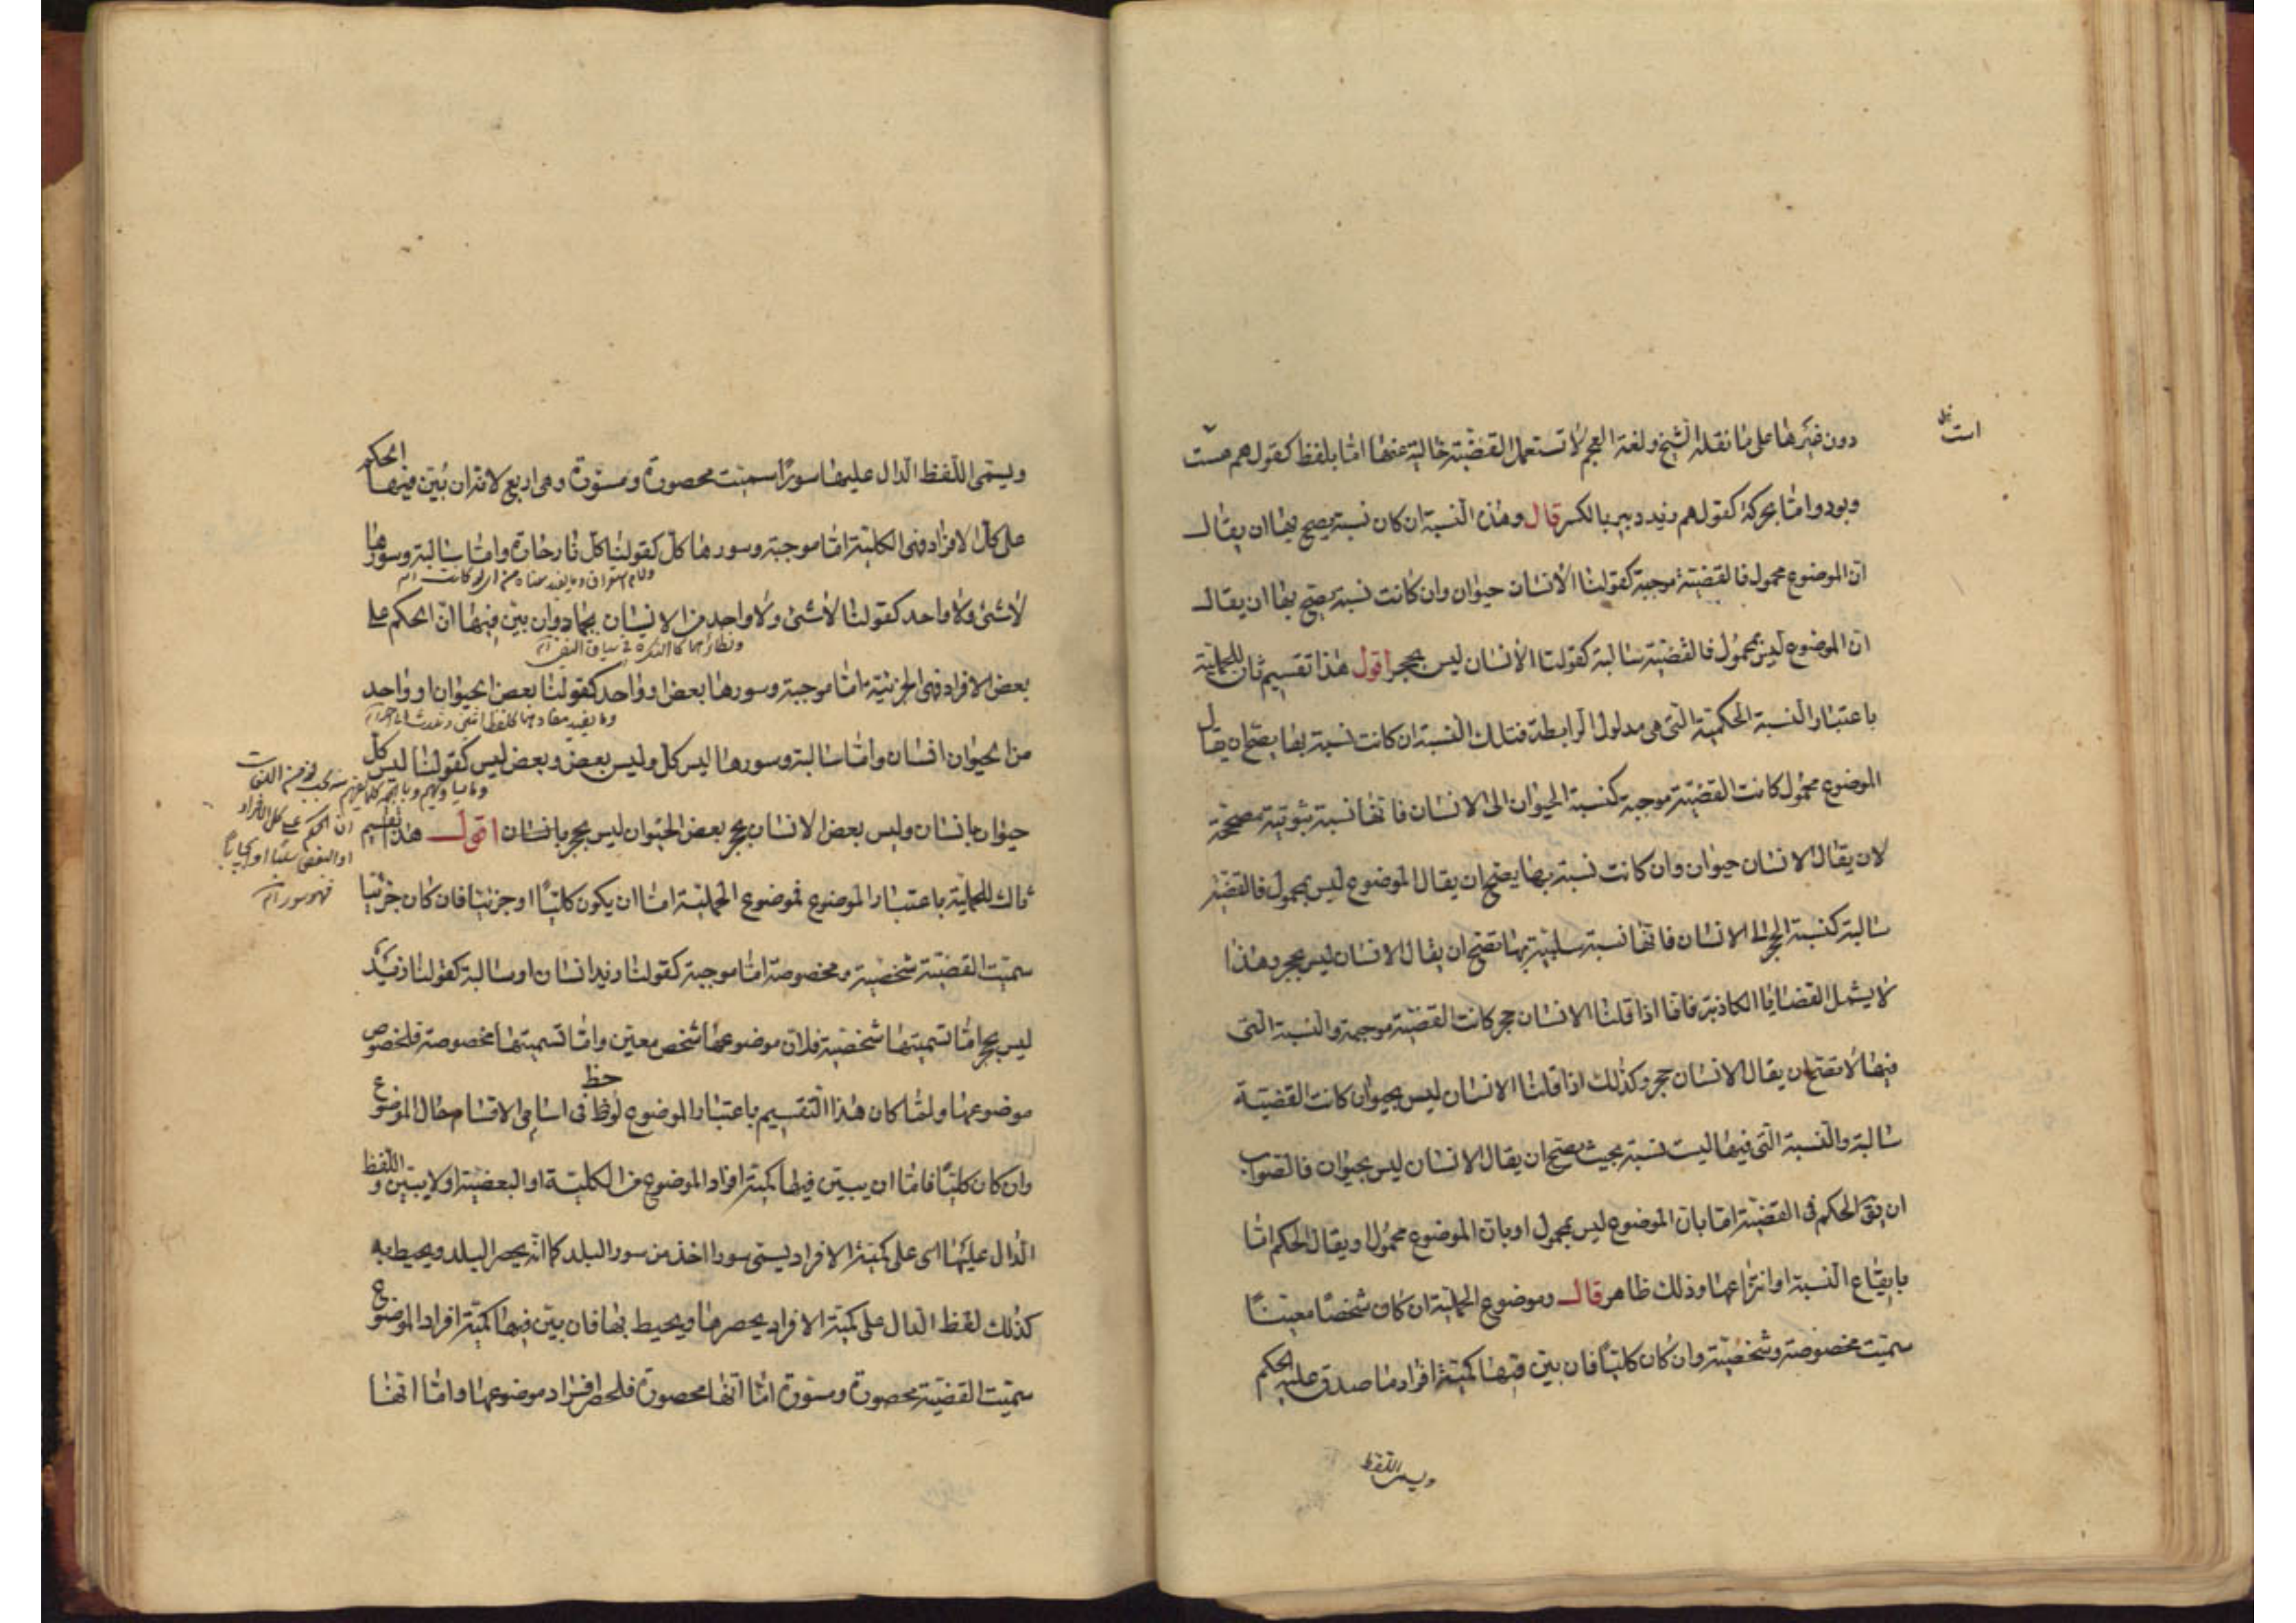 دون غيرها على ما نقله الشيخ ولغة العجم لا تستعمل القضية خالية عنها اما بلفظ كقولهم هست
است
وبود واما بحركة كقولهم زيد دبير بالكسر قال وهذه النسبة ان كان نسبة يصح بها ان يقال
ان الموضوع محمول فالقضية موجبة كقولنا الانسان حيوان وان كانت نسبة يصح بها ان يقال
ان الموضوع ليس بمحمول فالقضية سالبة كقولنا الانسان ليس بحجر اقول هذا تقسيم ثان للحملية
باعتبار النسبة الحكمية التي هي مدلول الرابطة فتلك النسبة ان كانت نسبة بها يصح ان يقال
الموضوع محمول كانت القضية موجبة كنسبة الحيوان الى الانسان فانها نسبة ثبوتية مصححة
لان يقال الانسان حيوان وان كانت نسبة بها يصح ان يقال الموضوع ليس بمحمول فالقضية
سالبة كنسبة الحجر الى الانسان فانها نسبة سلبية بها تصح ان يقال الانسان ليس بحجر وهذا
لا يشمل القضايا الكاذبة فانا اذا قلنا الانسان حجر كانت القضية موجبة والنسبة التي
فيها لا تصح ان يقال الانسان حجر وكذلك اذا قلنا الانسان ليس بحيوان كانت القضية
سالبة والنسبة التي فيها ليست نسبة بحيث يصح ان يقال الانسان ليس بحيوان فالصواب
ان يق الحكم في القضية اما بان الموضوع ليس بمحمول او بان الموضوع محمول او يقال الحكم اما
بايقاع النسبة او انتزاعها وذلك ظاهر قال وموضوع الحملية ان كان شخصا معينا
سميت مخصوصة وشخصية وان كان كليا فان بين فيها كمية افراد ما صدق عليه الحكم
ويسمى اللفظ
ويسمى اللفظ الدال عليها سورا سميت محصورة ومسورة وهي اربع لانه ان بين فيها الحكم
على كل الافراد فهى الكلية اما موجبة وسورها كل كقولنا كل نار حارة واما سالبة وسورها
لا شئ ولا واحد كقولنا لا شئ ولا واحد من الانسان بجماد وان بين فيها ان الحكم على
ونظائرهما كالنكرة في سياق النفى
بعض الافراد فهى الجزئية اما موجبة وسورها بعض او واحد كقولنا بعض الحيوان او واحد
من الحيوان انسان واما سالبة وسورها ليس كل وليس بعض وبعض ليس كقولنا ليس كل
حيوان بانسان وليس بعض الانسان بحجر بعض الحيوان ليس بحجر بانسان اقول هذا تقسيم
ان الحكم على كل الافراد
او البعض سلبا او ايجابا
فهو سور
ثالث للحملية باعتبار الموضوع فموضوع الحملية اما ان يكون كليا او جزئيا فان كان جزئيا
سميت القضية شخصية ومخصوصة اما موجبة كقولنا زيد انسان او سالبة كقولنا زيد
ليس بحجر اما تسميتها شخصية فلان موضوعها شخص معين واما تسميتها مخصوصة فلخصوص
موضوعها ولما كان هذا التقسيم باعتبار الموضوع لوحظ في اسامي الاقسام حال الموضوع
وان كان كليا فاما ان يبين فيها كمية افراد الموضوع من الكلية او البعضية او لا يبين واللفظ
الدال عليها اى على كمية الافراد يسمى سورا اخذ من سور البلد كما انه يحصر البلد ويحيط به
كذلك لفظ الدال على كمية الافراد يحصرها ويحيط بها فان بين فيها كمية افراد الموضوع
سميت القضية محصورة ومسورة اما انها محصورة فلحصر افراد موضوعها واما انها